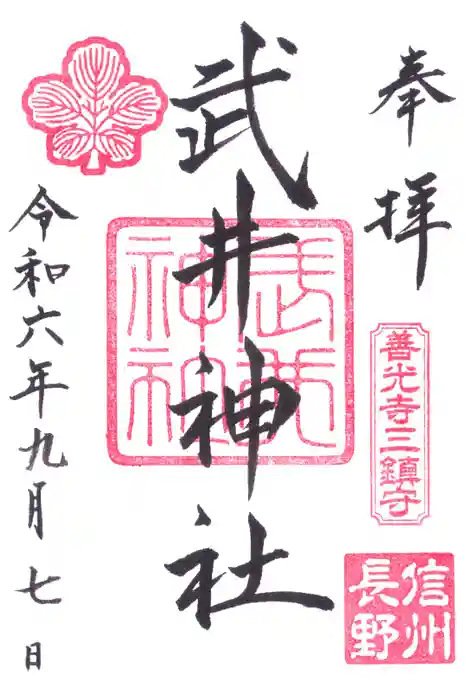 奉拝
善光寺三鎮守
信州
長野
武井神社
武井
神社
令和六年九月七日